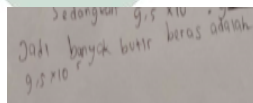 Sedangkan 9,5 x 10
Jadi banyak butir beras adalah
9,5 x 10